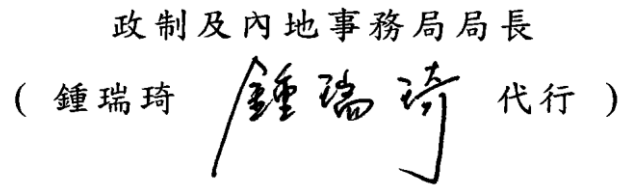 政制及內地事務局局長
( 鍾瑞琦 鍾瑞琦 代行 )